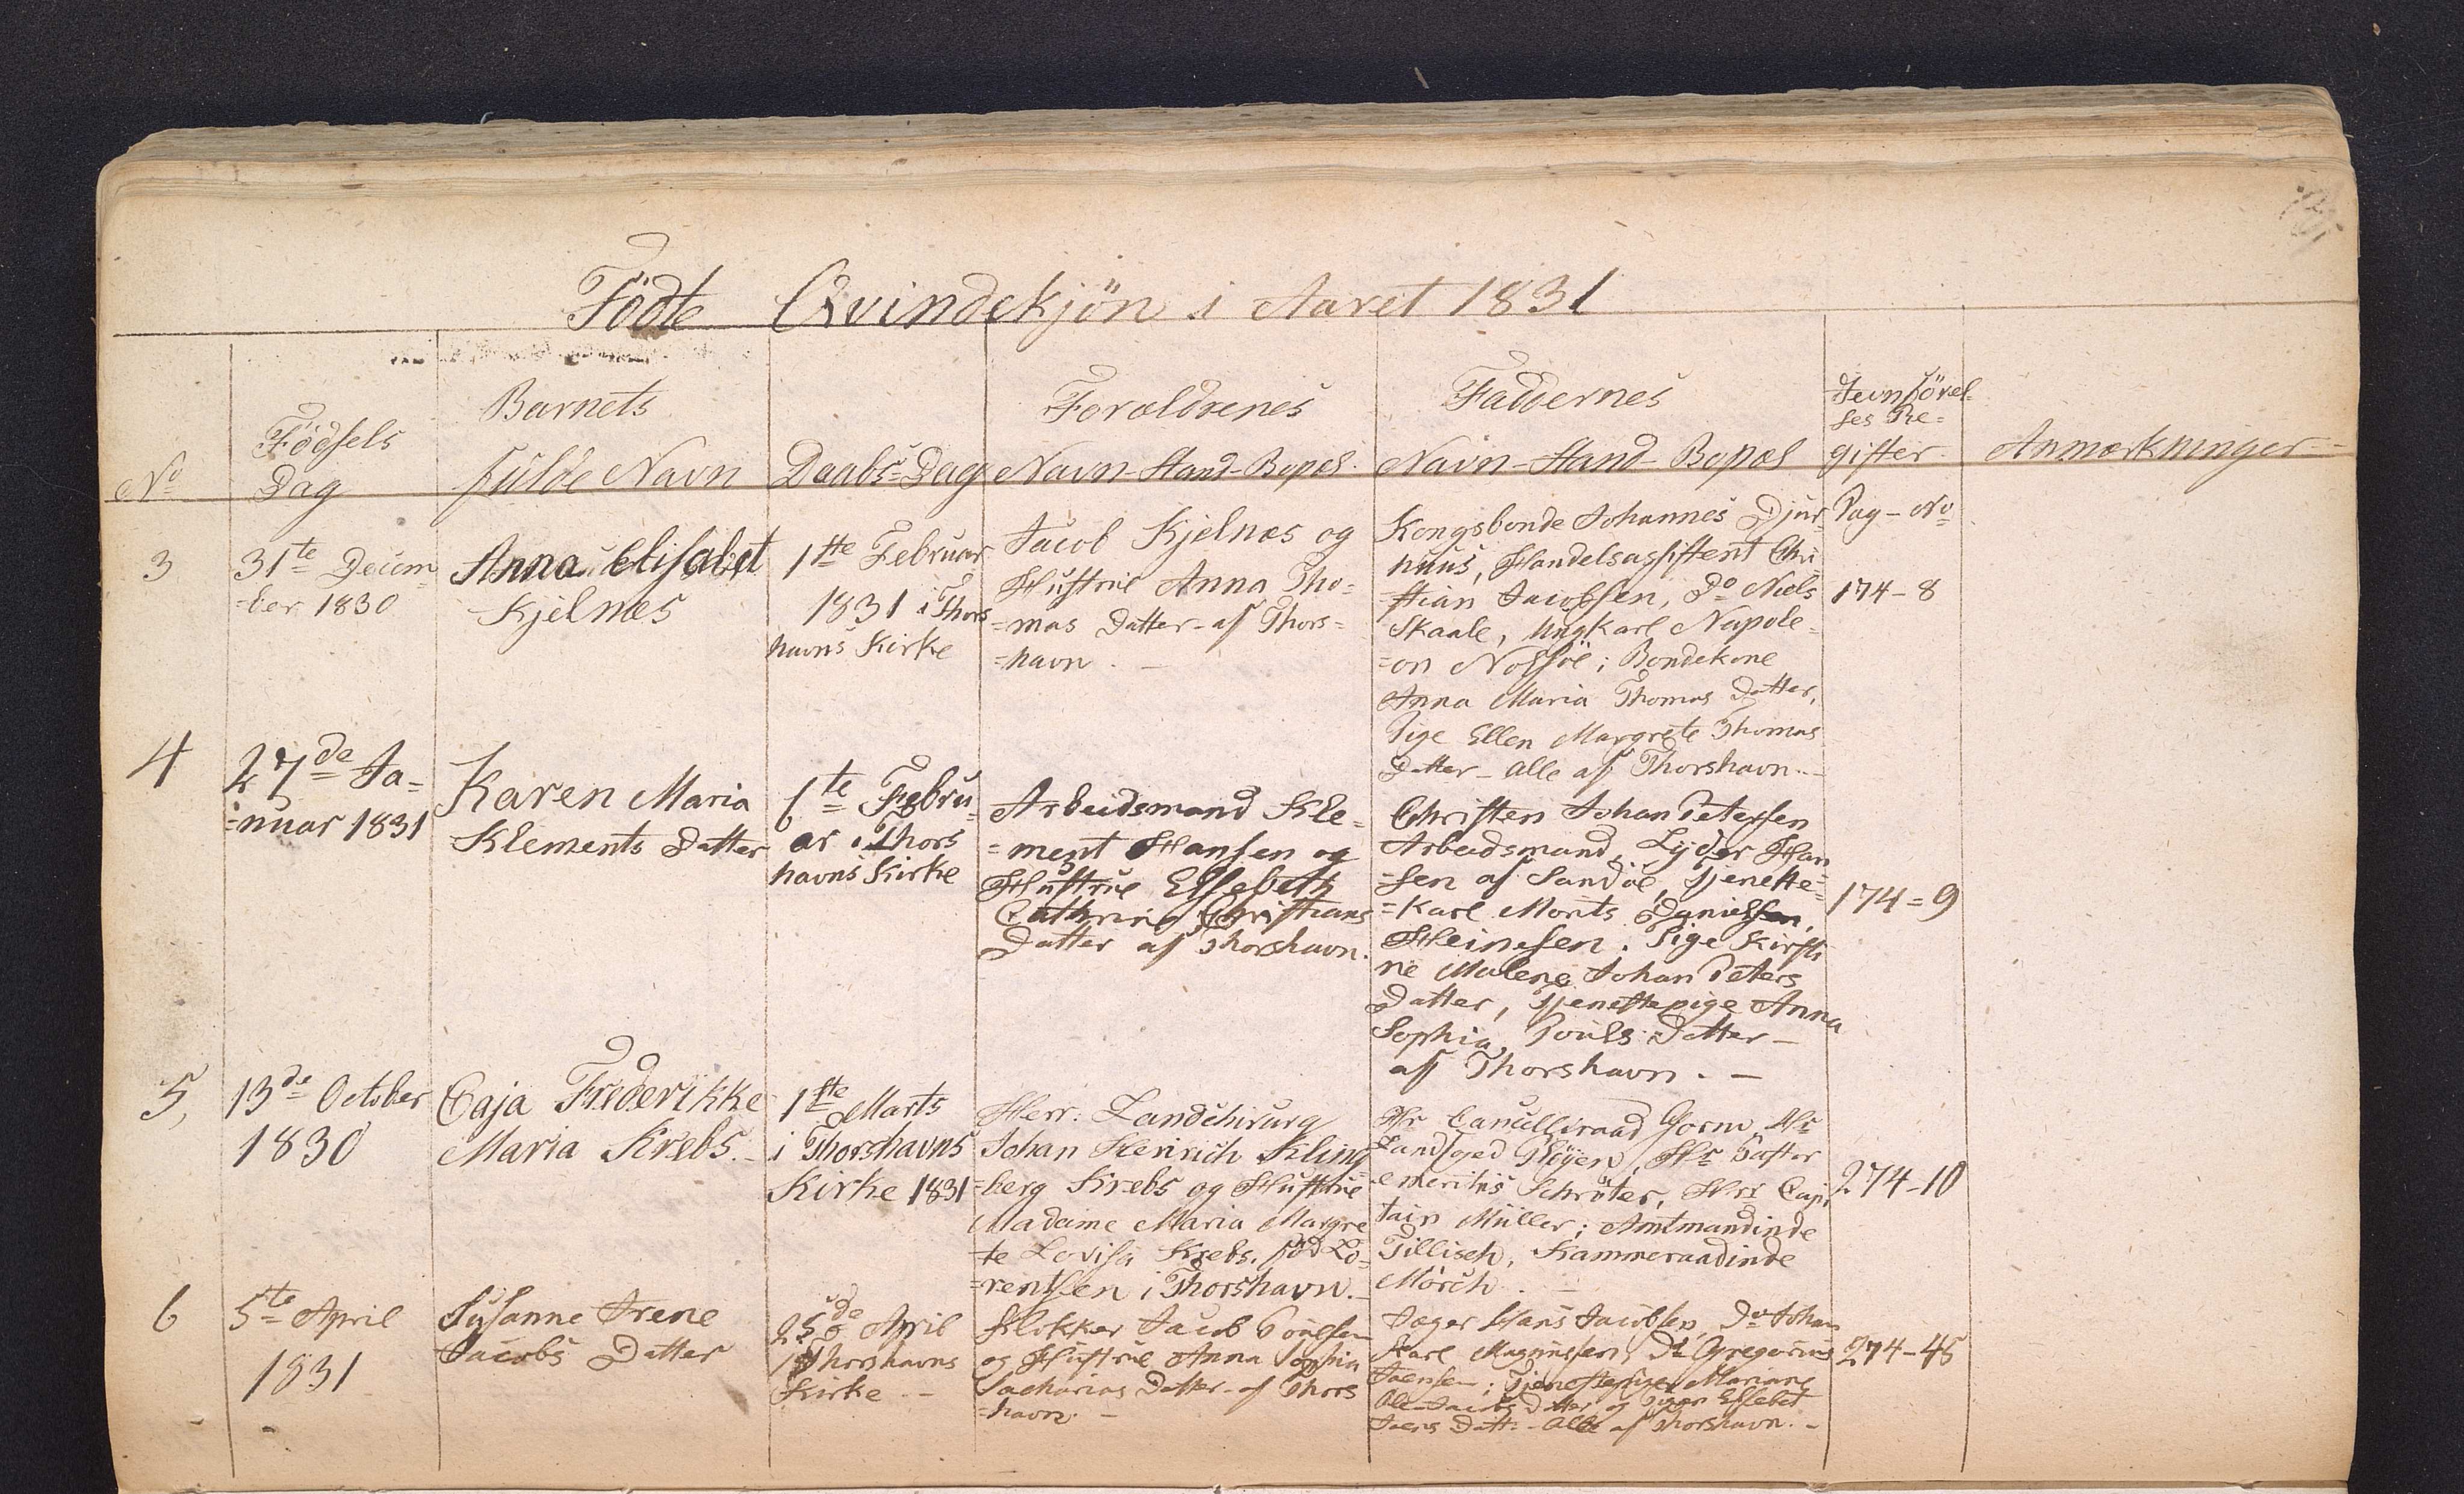 Födte Qvindekjön i Aaret 1831
No
Födsels
Dag
Barnets
fulde Navn
Daabs-Dag
Forældrenes
Navn-Stand-Bopæl
Faddernes
Navn-Stand-Bopæl
Jevnförel-
ses Re-
gister
Anmærkninger
Pag-No
3
31te Decem-
-ber 1830
Anna Elisabet
Kjelnes
1ste Februar
1831 i Thors
havns Kirke
Jacob Kjelnæs og
Hustrue Anna Tho-
=mas Datter af Thors=
=havn. -
Kongsbonde Johannes Djur-
huus, Handelsassistent Chri
=stian Jacobsen, Do Niels
Skaale, Ungkarl Napole=
=on Nolsöe; Bondekone
Anna Maria Thomas Datter,
Pige Ellen Margrete Thomas
Datter - Alle af Thorshavn. -
174-8
4
27de Ja=
=nuar 1831
Karen Maria
Klements Datter
6te Febru=
ar i Thors
havns Kirke
Arbeidsmand Kle=
=ment Hansen og
Hustrue Elsebeth
Cathrina Christians
Datter af Thorshavn.
Christen Johan Petersen
Arbeidsmand, Lyder Han
=sen af Sandöe, Tjeneste=
=Karl Morits Danielsen,
Heinesen. Pige Kirsti
ne Malene Johan Peters
Datter, Tjenestepige Anna
Sophia Pouls Datter -
af Thorshavn. -
174=9
5,
13de October
1830
Caja Frederikke
Maria Krebs. -
1ste Marts
i Thorshavns
Kirke 1831
Herr: Landchirurg
Johan Henrich Kling
=berg Krebs og Hustrue
Madame Maria Margre
=te Lovisa Krebs, föd Lo=
=rentsen i Thorshavn. -
Hr Cancelliraad Gorm, Hr
Landfoged Plöyen, Hr Pastor
emeritus Schröter, Hr Capi
tain Müller; Amtmandinde
Tillisch, Kammeraadinde
Mörch. -
274-10
6
5te April
1831
Susanne Irene
Jacobs Datter
25de April
i Thorshavns
Kirke. -
Klokker Jacob Poulsen
og Hustrue Anna Sophia
Sacharias Datter af Thors
=havn. -
Jæger Hans Jacobsen, Do Johan
Karl Magnussen, Do Gregorius
Joensen; Tjenestepige Mariane
Ole Jacobs Datter og Pigen Elsebet
Joens Datt: - Alle af Thorshavn. -
274-48